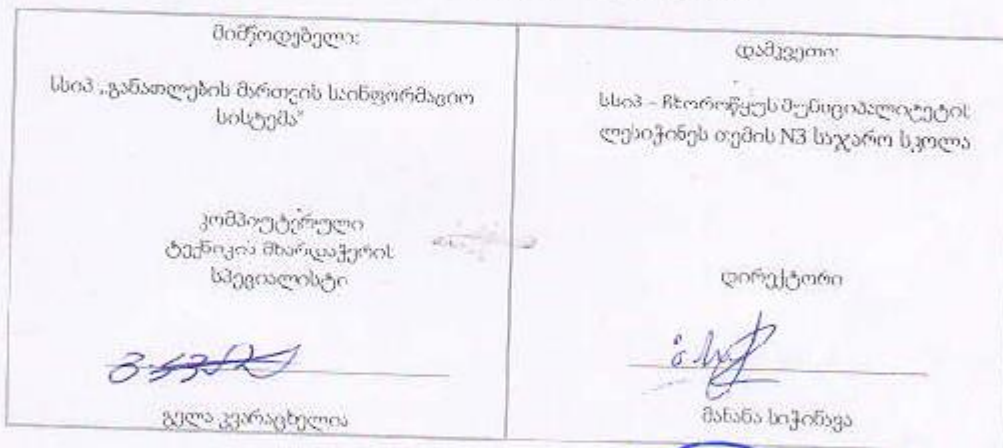 მიმწოდებელი:
სსიპ „განათლების მართვის საინფორმაციო
სისტემა“
კომპიუტერული
ტექნიკის მხარდაჭერის
სპეციალისტი
გელა კვარაცხელია
დამკვეთი:
სსიპ – ჩხოროწყუს მუნიციპალიტეტის
ლესიჭინეს თემის N3 საჯარო სკოლა
დირექტორი
მანანა სიჭინავა